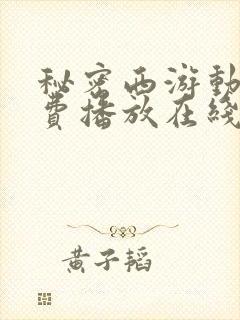 秘密西游動
費播放在綫
黄子韬